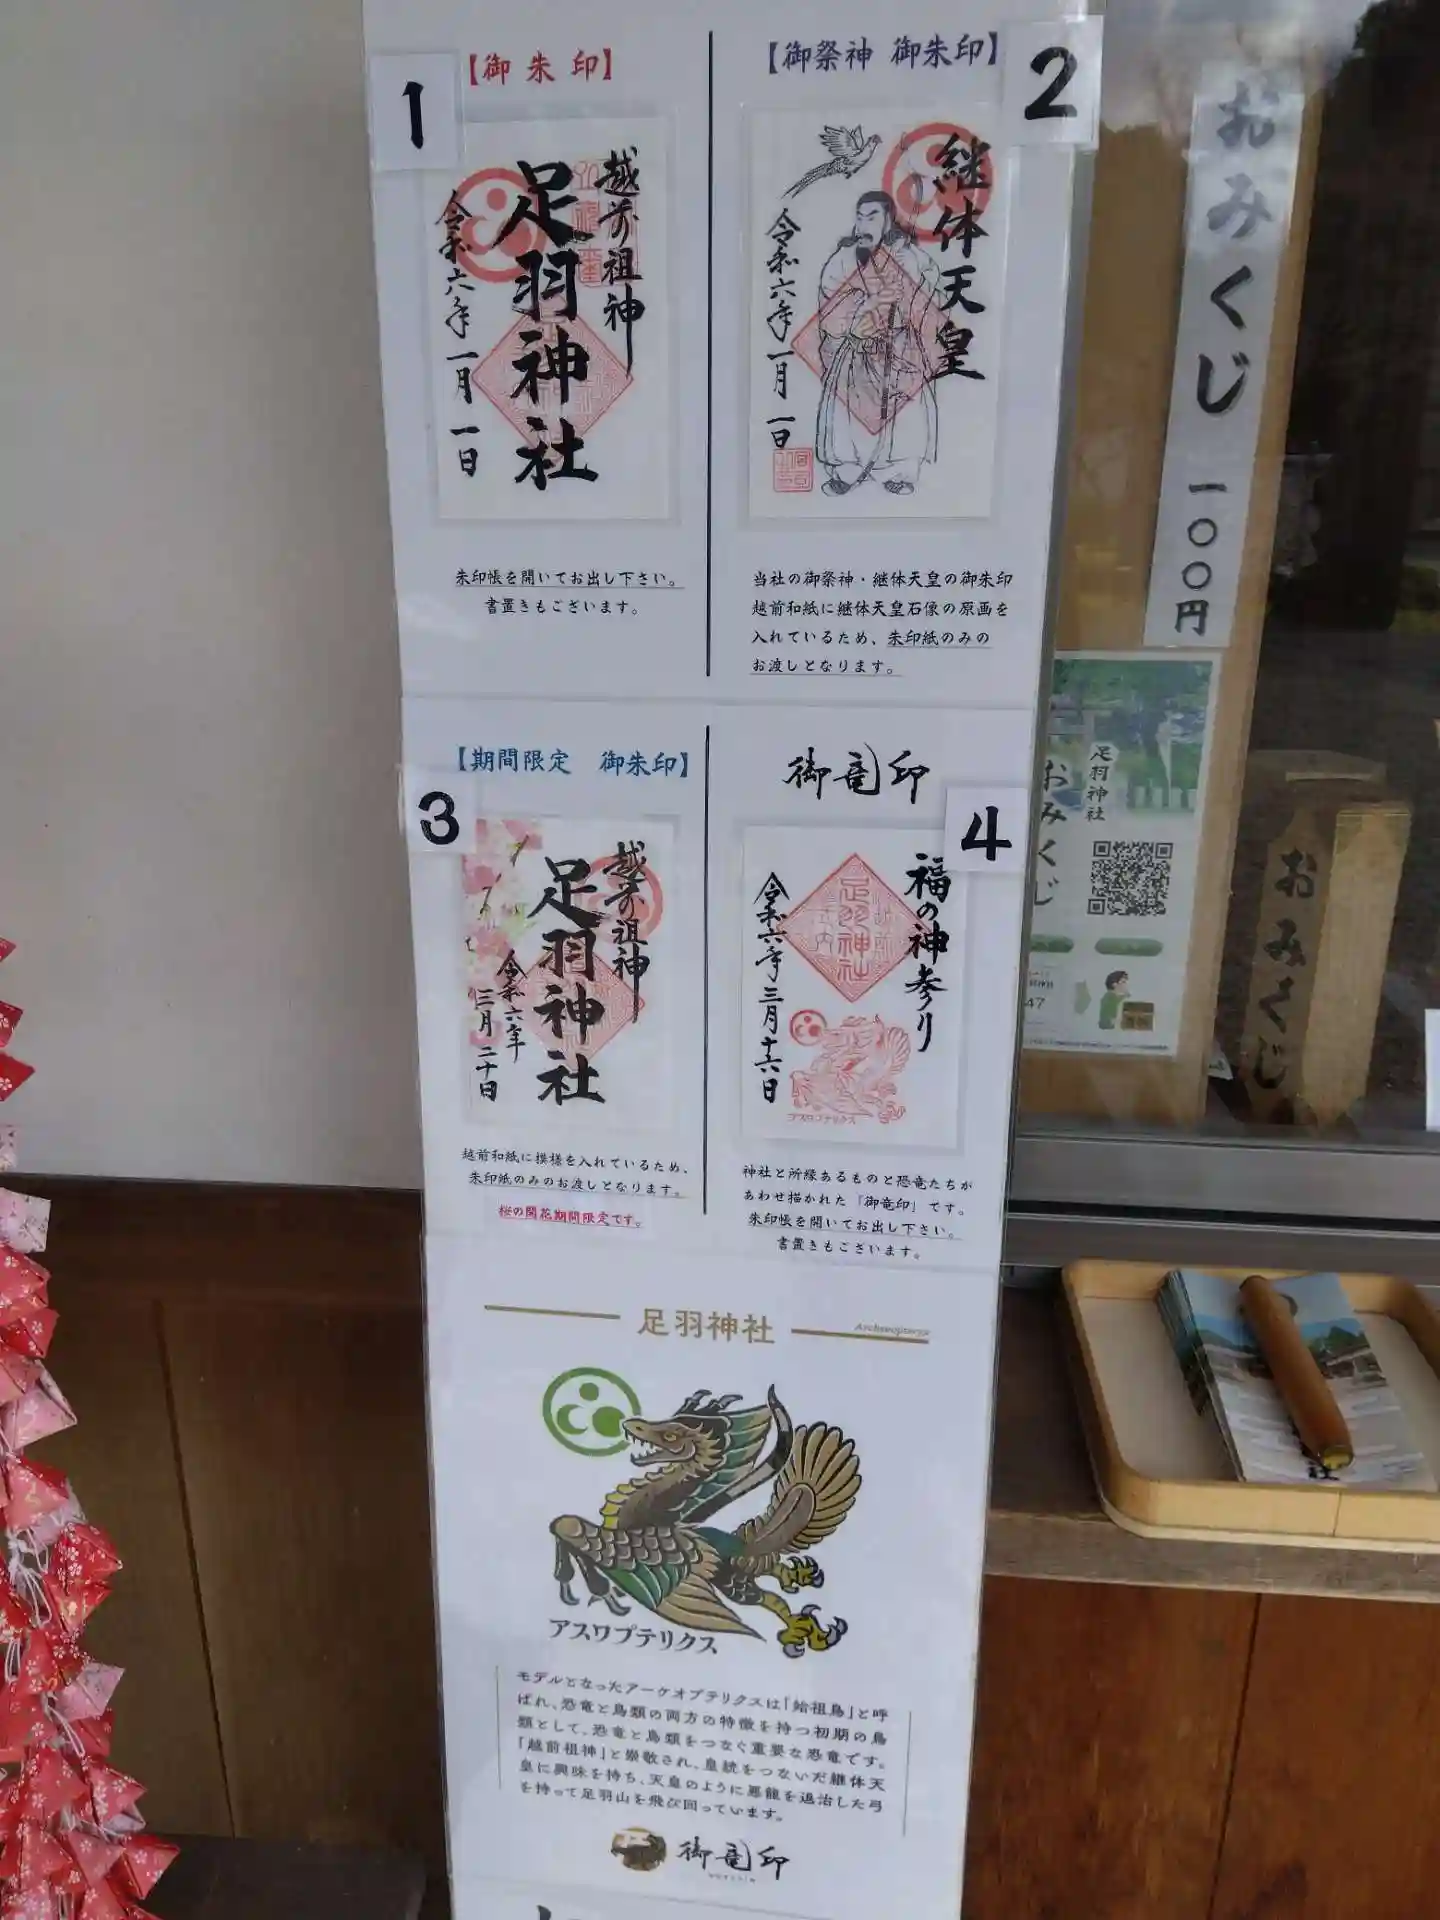 1
【御朱印】
越前の祖神
足羽神社
令和六年一月一日
朱印帳を開いてお出し下さい。
書置きもございます。
2
【御祭神 御朱印】
継体天皇
令和六年一月一日
当社の御祭神・継体天皇の御朱印
越前和紙に継体天皇石像の原画を
入れているため、朱印紙のみの
お渡しとなります。
3
【期間限定 御朱印】
越前の祖神
足羽神社
令和六年
三月二十日
越前和紙に模様を入れているため、
朱印紙のみのお渡しとなります。
桜の開花期間限定です。
4
御竜印
福の神参り
足羽神社
令和六年三月十六日
アスワプテリクス
神社と所縁あるものと恐竜たちが
あわせ描かれた「御竜印」です。
朱印帳を開いてお出し下さい。
書置きもございます。
足羽神社
Archaeopteryx
アスワプテリクス
モデルとなったアーケオプテリクスは「始祖鳥」と呼
ばれ、恐竜と鳥類の両方の特徴を持つ初期の鳥
類として、恐竜と鳥類をつなぐ重要な恐竜です。
「越前祖神」と崇敬され、皇統をつないだ継体天
皇に興味を持ち、天皇のように悪龍を退治した弓
を持って足羽山を飛び回っています。
御竜印
おみくじ 一〇〇円
足羽神社
おみくじ
47
おみくじ
社